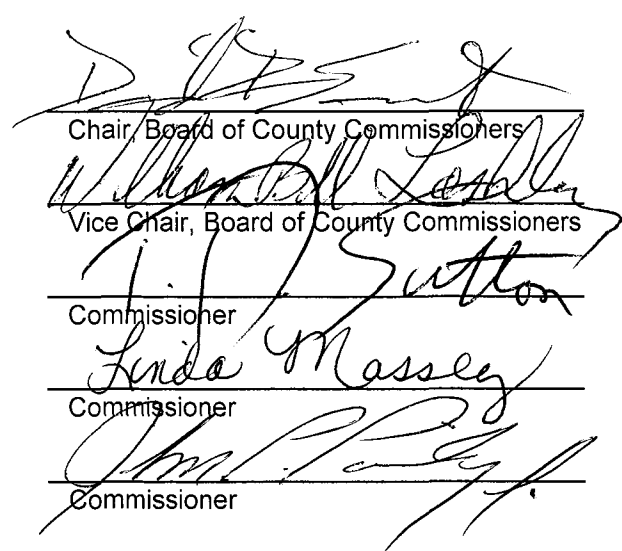 Chair, Board of County Commissioners
William Bill Lashley
Vice Chair, Board of County Commissioners
Sutton
Commissioner
Linda Massey
Commissioner
Commissioner